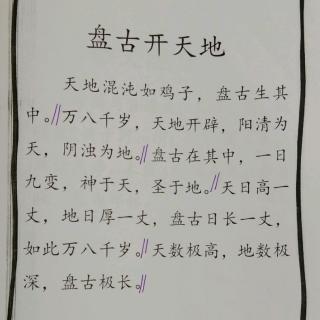 盘古开天地
天地混沌如鸡子，盘古生其
中。万八千岁，天地开辟，阳清为
天，阴浊为地。盘古在其中，一日
九变，神于天，圣于地。天日高一
丈，地日厚一丈，盘古日长一丈，
如此万八千岁。天数极高，地数极
深，盘古极长。